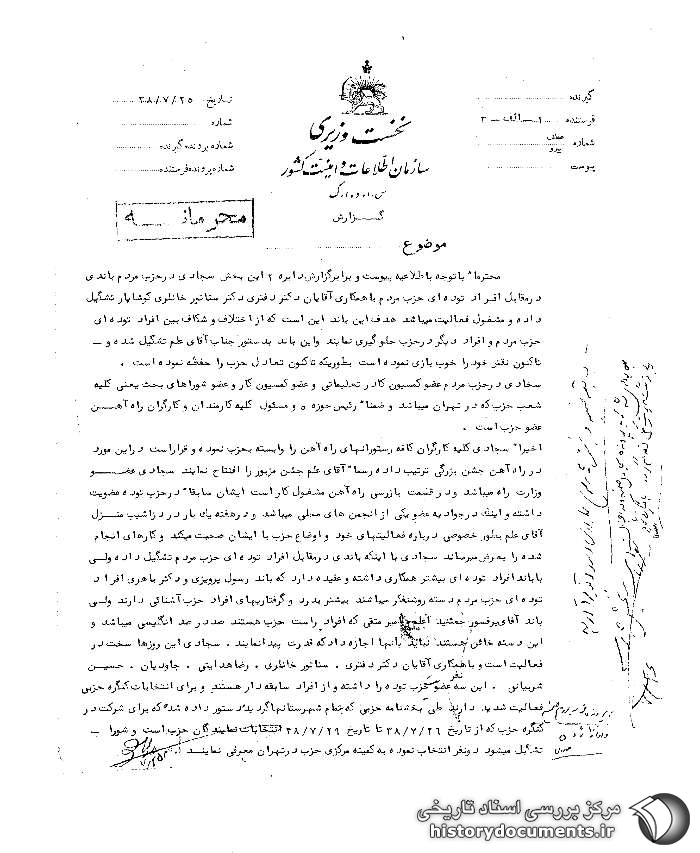 گیرنده
فرستنده ۱- الف - ۳
شماره
پیوست
تاریخ ۳۸/۷/۲۵
شماره
شماره پرونده گیرنده
شماره پرونده فرستنده
نخست وزیری
سازمان اطلاعات و امنیت کشور
س.ا.و.ا.ک
گزارش
محرمانه
موضوع
محترما" باتوجه باطلاعیه پیوست و برابرگزارش دایره ۲ این بخش سجادی در حزب مردم باندی
در مقابل افراد توده ای حزب مردم با همکاری آقایان دکتر دفتری دکتر سناتور خانلری کوشایار تشکیل
داده و مشغول فعالیت میباشد هدف این باند این است که از اختلاف و شکاف بین افراد توده ای
حزب مردم و افراد دیگر در حزب جلوگیری نمایند و این باند بدستور جناب آقای علم تشکیل شده و ـ
تاکنون نقش خود را خوب بازی نموده است بطوریکه تاکنون تعادل حزب را حفظ نموده است .
سجادی در حزب مردم عضو کمسیون کادر تعلیماتی و عضو کمسیون کار و عضو شوراهای بحث یعنی کلیه
شعب حزب که در تهران میباشد و ضمنا" رئیس حوزه ۵ و مسئول کلیه کارمندان و کارگران راه آهن
عضو حزب است .
اخیرا" سجادی کلیه کارگران کافه رستورانهای راه آهن را وابسته بحزب نموده و قرار است در این مورد
در راه آهن جشن بزرگی ترتیب داده رسما" آقای علم جشن مزبور را افتتاح نمایند سجادی عضو
وزارت راه میباشد و در قسمت بازرسی راه آهن مشغول کار است ایشان سابقا" در حزب توده عضویت
داشته و اینک در جوادیه عضو یکی از انجمن های محلی میباشد و در هفته یک بار در دزاشیب منزل
آقای علم بطور خصوصی درباره فعالیتهای خود و اوضاع حزب با ایشان صحبت میکند و کارهای انجام
شده را بعرض میرساند سجادی با اینکه باندی در مقابل افراد توده ای حزب مردم تشکیل داده ولی
با باند افراد توده ای بیشتر همکاری داشته و عقیده دارد که باند رسول پرویزی و دکتر باهری افراد
توده ای حزب مردم دسته روشنفکر میباشند بیشتر بدرد و گرفتاریهای افراد حزب آشنائی دارند ولی
باند آقای پرفسور جمشید اعلم و میر متقی که افراد راست حزب هستند صد در صد انگلیسی میباشد و
این دسته خائن هستند نباید بآنها اجازه داد که قدرت پیدا نمایند . سجادی این روزها سخت در
فعالیت است و با همکاری آقایان دکتر دفتری . سناتور خانلری . رضا هدایتی . جاودیان . حسین
شربیانی . این سه نفر عضو حزب توده را داشته و از افراد سابقه دار هستند و برای انتخابات کنگره حزبی
فعالیت شدید دارند طی بخشنامه حزبی که بتمام شهرستانها گردید دستور داده شده که برای شرکت در
کنگره حزب که از تاریخ ۳۸/۷/۲۶ تا تاریخ ۳۸/۷/۲۹ انتخابات نمایندگان حزب است و شورا ـ
تشکیل میشود دو نفر انتخاب نموده به کمیته مرکزی حزب در تهران معرفی نمایند .
مرکز بررسی اسناد تاریخی
historydocuments.ir